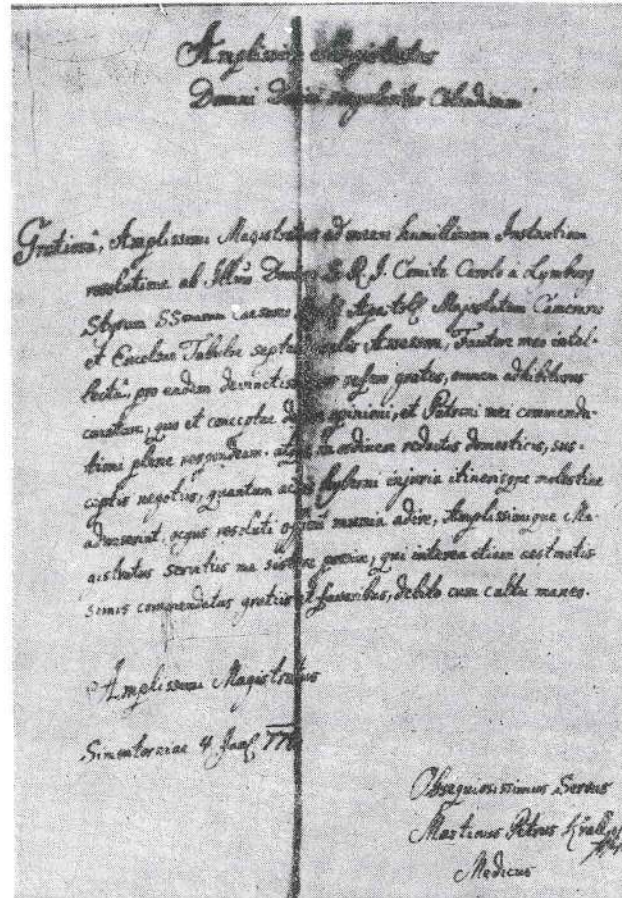 Amplissime Magistratus
Domini Domini singulariter Colendissimi
Gratiam, Amplissimi Magistratus ad meam humillimam Instantiam
resolutione ab Illmo Domino S. R. I. Comite Carolo à Lymburg
Styrum SSmarum Caesareo Apostol Majestatum Camerario
et Excelsae Tabulae septem Assessore, Fautore meo intel-
lectâ, pro eadem grates, omnem adhibiturus
conatum, quo et conceptae de opinioni, et Patroni mei commenda-
tioni plene respondeam, in ordinem redactis domesticis, sus-
ceptis negotiis, quantum hyberni injuria itinerisque molestiae
admiserint, resoluti munia adire, Amplissimique Ma-
gistratus servitiis me sistere, qui interea etiam aestimatis
simis commendatus gratiis et favoribus, debito cum cultu maneo.
Amplissimi Magistratus
Simontorniae 4
Obsequiosissimus Servus
Martinus Petrus
Medicus